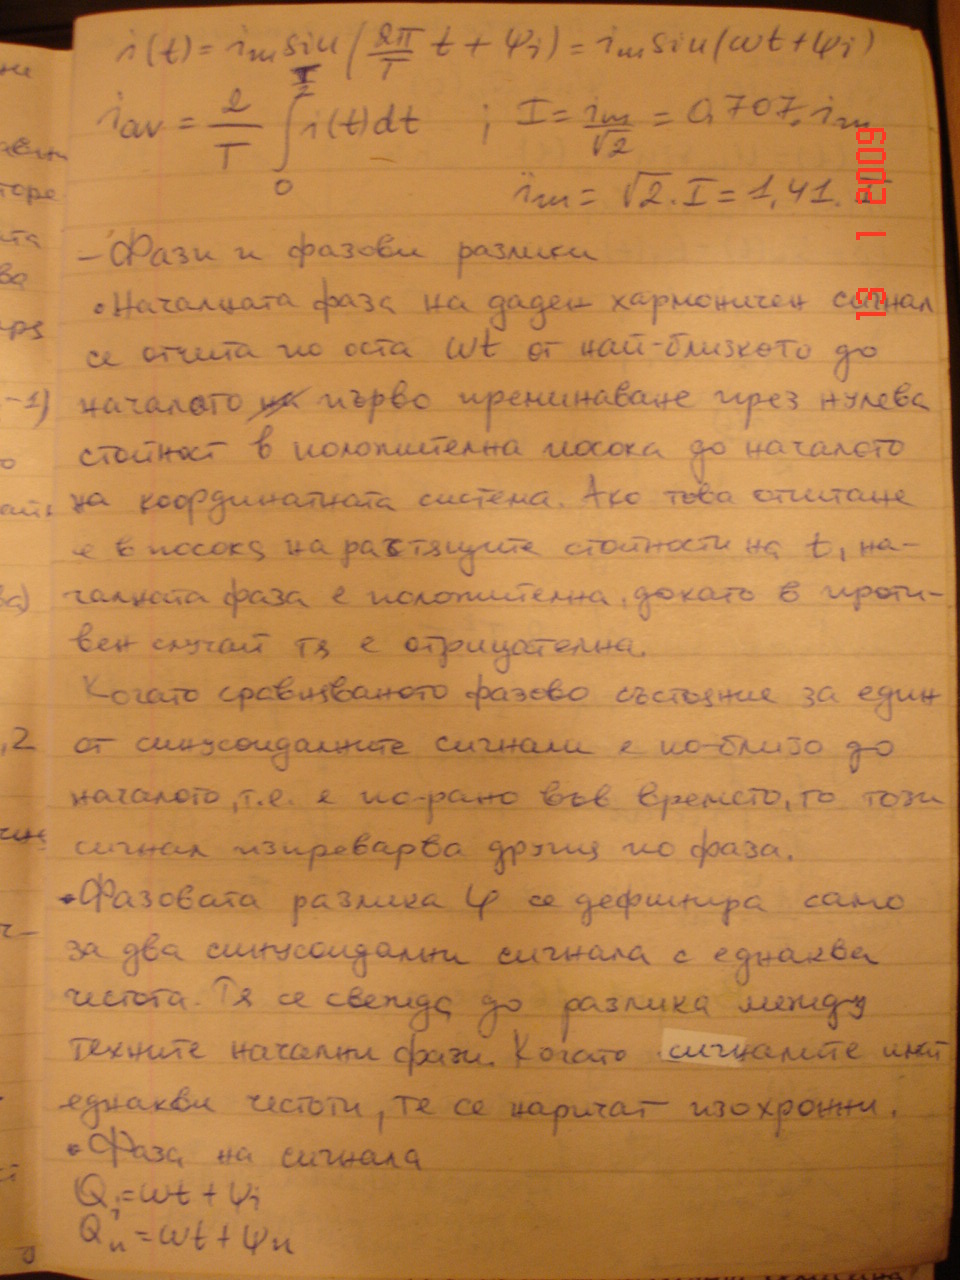 i(t) = i_m sin (2π/T t + ψ_i) = i_m sin(ωt + ψ_i)
i_av = 2/T ∫_0^{T/2} i(t)dt ; I = i_m/√2 = 0,707. i_m
i_m = √2. I = 1,41. I
– Фази и фазови разлики
• Началната фаза на даден хармоничен сигнал
се отчита по оста ωt от най-близкото до
началото на първо преминаване през нулева
стойност в положителна посока до началото
на координатната система. Ако това отчитане
е в посока на растящите стойности на t, на-
чалната фаза е положителна, докато в проти-
вен случай тя е отрицателна.
Когато сравняваното фазово състояние за един
от синусоидалните сигнали е по-близо до
началото, т.е. е по-рано във времето, то този
сигнал изпреварва другия по фаза.
• Фазовата разлика φ се дефинира само
за два синусоидални сигнала с еднаква
честота. Тя се свежда до разлика между
техните начални фази. Когато сигналите имат
еднакви честоти, те се наричат изохронни.
• Фаза на сигнала
Q_i = ωt + ψ_i
Q_u = ωt + ψ_u
13 1 2009
-1)
ва)
,2